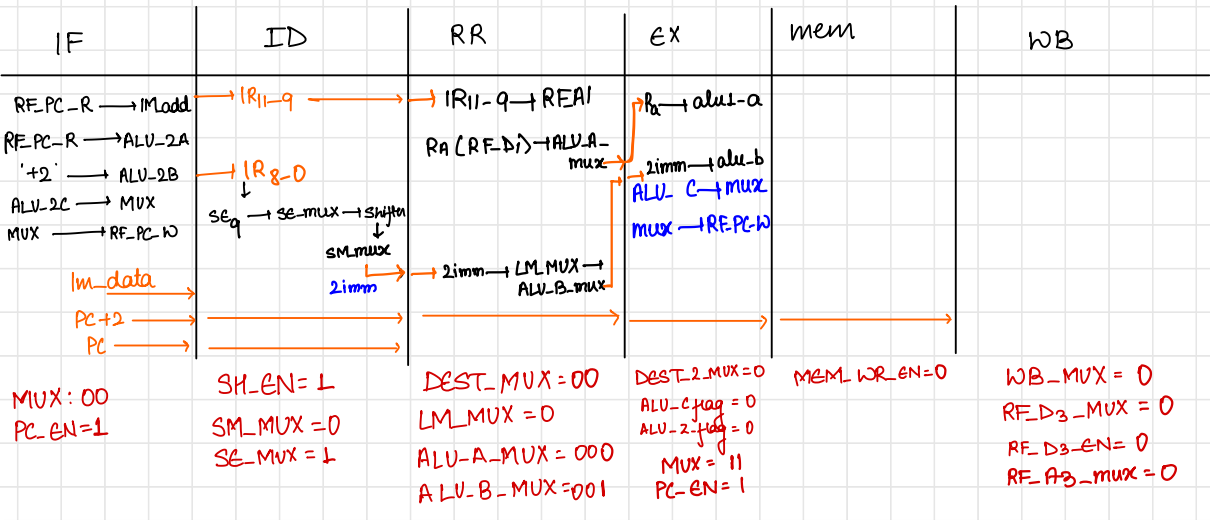 IF
ID
RR
EX
mem
WB
RF_PC_R → IM add
RF_PC_R → ALU_2A
'+2' → ALU_2B
ALU_2C → MUX
MUX → RF_PC_W
Im_data
PC+2
PC
MUX: 00
PC_EN=1
IR11-9
IR8-0
SE9 → SE_MUX → Shifter
SM_MUX
2imm
SH_EN= 1
SM_MUX =0
SE_MUX = 1
IR11-9 → RFA1
RA (RF_D1) → ALU_A_
mux
2imm → LM_MUX →
ALU_B_mux
DEST_MUX=00
LM_MUX =0
ALU-A_MUX = 000
ALU_B_MUX=001
Ra → alu1-a
2imm → alu_b
ALU_ C → mux
mux → RF_PC_W
DEST_2_MUX=0
ALU_Cflag = 0
ALU_2_flag = 0
MUX = 11
PC_EN= 1
MEM_WR_EN=0
WB_MUX = 0
RF_D3_MUX = 0
RF_D3_EN= 0
RF_A3_mux = 0